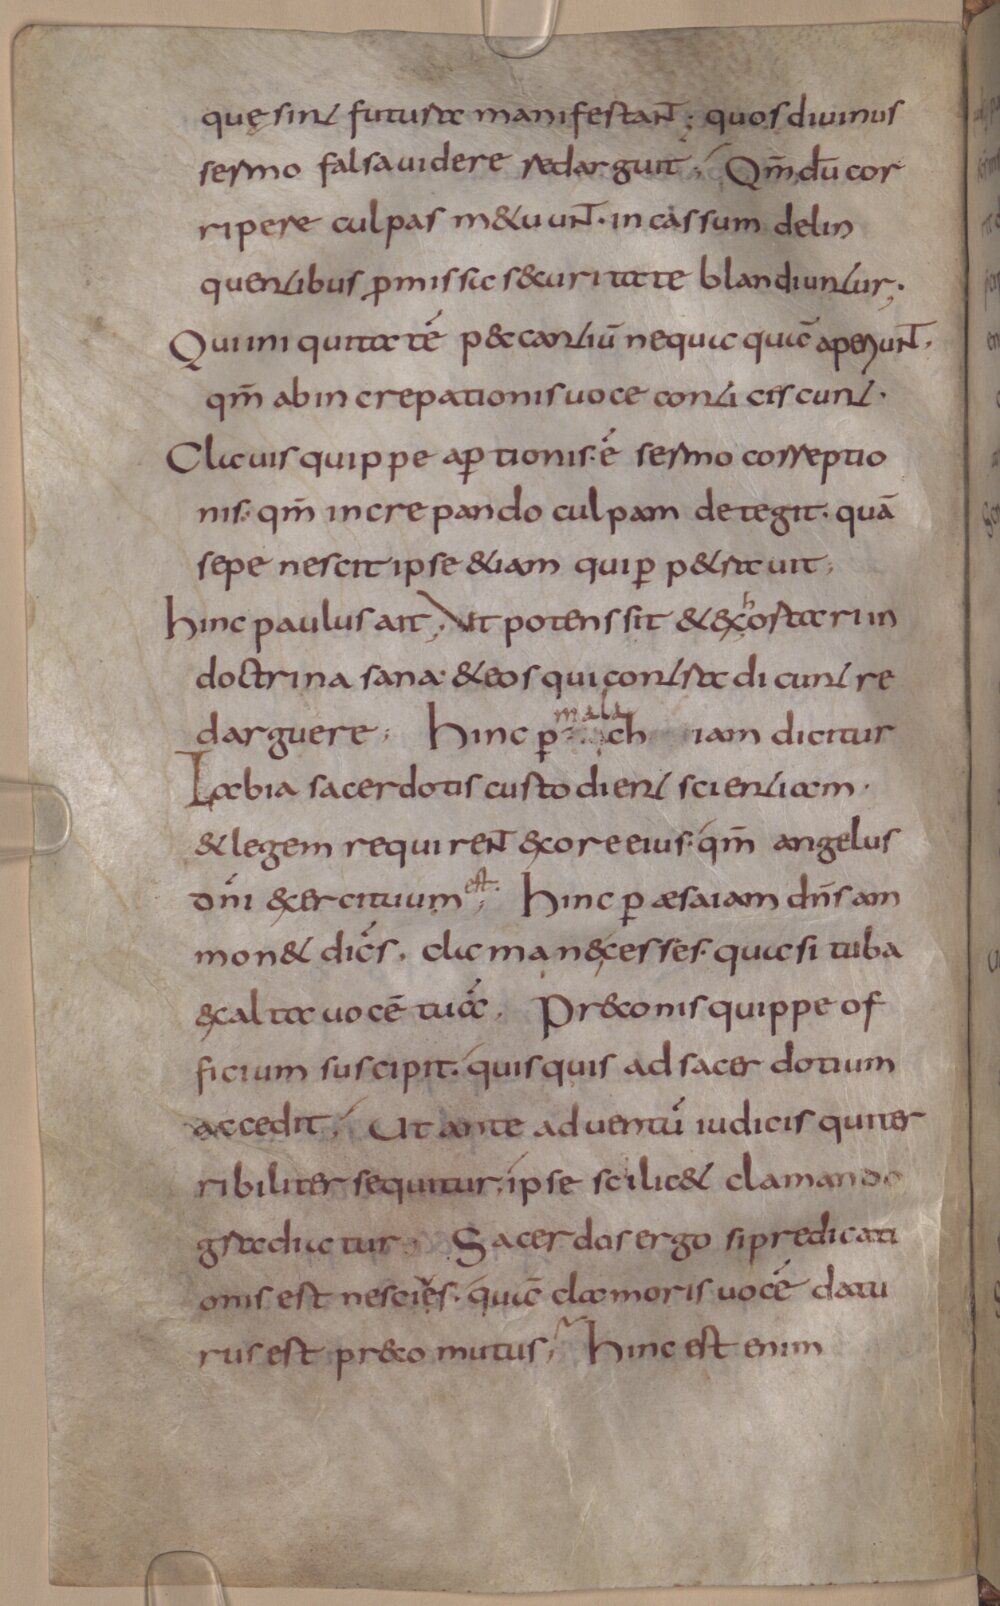 quę sint futura manifestant; quos divinus
sermo falsa videre redarguit; Qm̄ dū cor
ripere culpas metuunt. incassum delin
quentibus ꝓmissa securitate blandiuntur;
Qui iniquitatē peccantiū nequaquā aperiunt.
qm̄ ab increpationis voce conticiscunt.
Clavis quippe aꝑtionis. ē sermo correptio
nis. qm̄ increpando culpam detegit. quā
sepe nescit ipse etiam qui ꝑpetravit;
hinc paulus ait; Ut potens sit et exhortari in
doctrina sana. et eos qui contradicunt re
darguere; hinc ꝑ malach iam dicitur
Labia sacerdotis custodient scientiam.
et legem requirent ex ore eius. qm̄ angelus
dn̄i exercituum est; hinc ꝑ æsaiam dn̄s am
monet dicēs. clama ne cesses. quasi tuba
exalta vocē tuā. Preconis quippe of
ficium suscipit. quisquis ad sacerdotium
accedit; Ut ante adventū iudicis qui ter
ribiliter sequitur, ipse scilicet clamando
gradiatur. Sacerdos ergo si predicati
onis est nesciēs. quā clamoris vocē datu
rus est preco mutus; hinc est enim